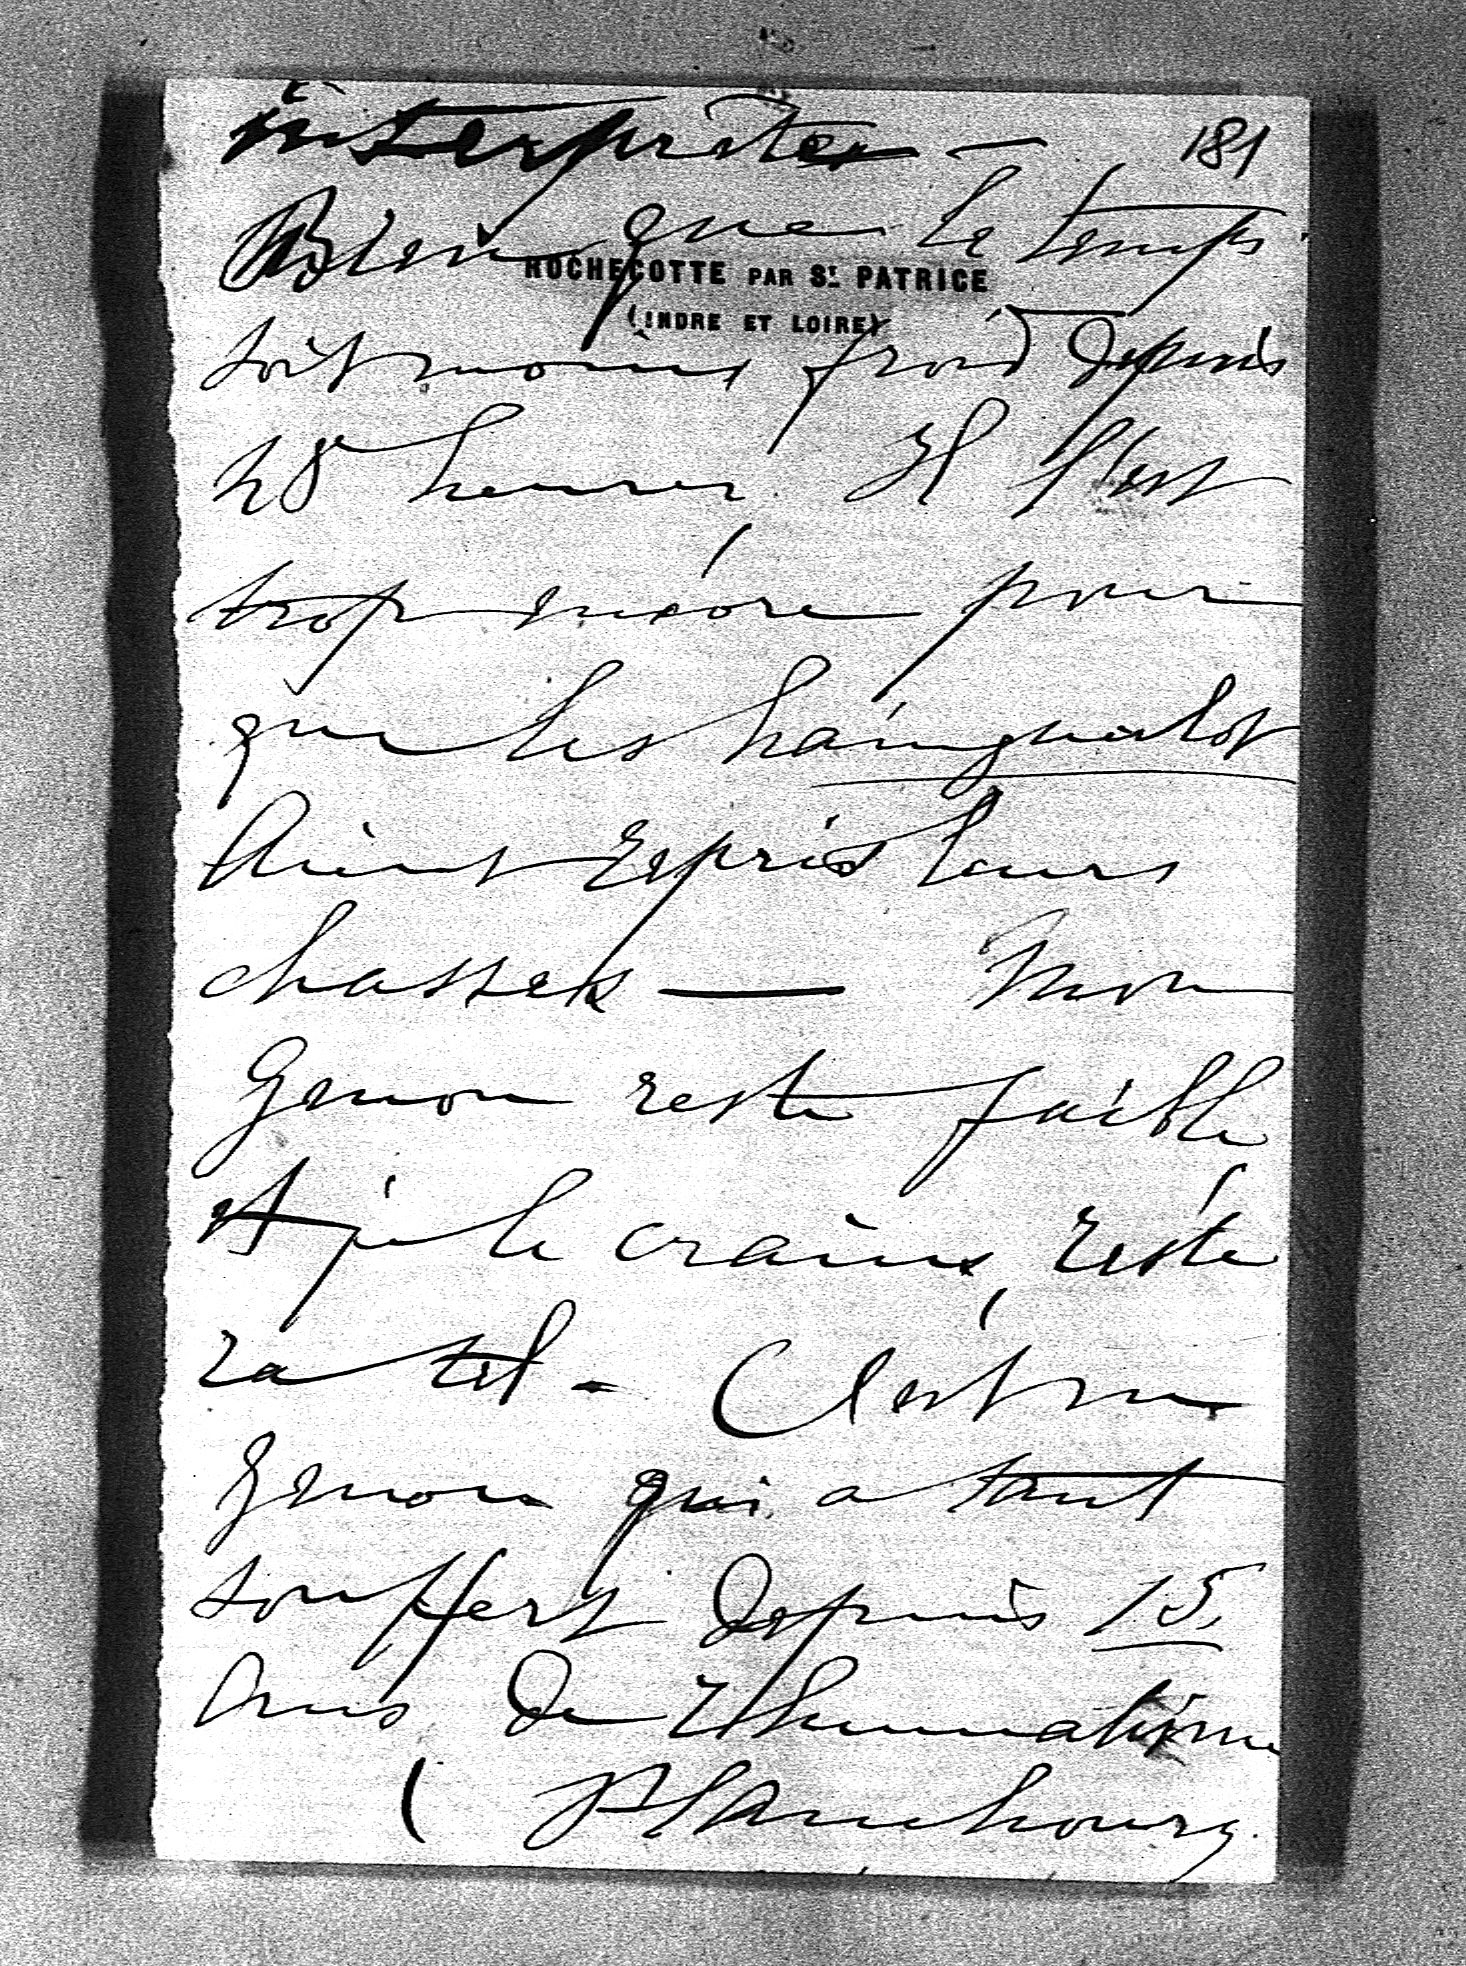 interpréter — 181
Bien que le temps
ROCHECOTTE PAR St. PATRICE
(INDRE ET LOIRE)
soit moins froid depuis
28 heures, Il l'est
trop encore pour
que les hainguerlot
Aient repris leurs
chasses — Mon
Genou reste faible
et je le crains, reste
ra tel - C'est ce
Genou qui a tant
souffert depuis 15
Ans de Rhumatisme
(